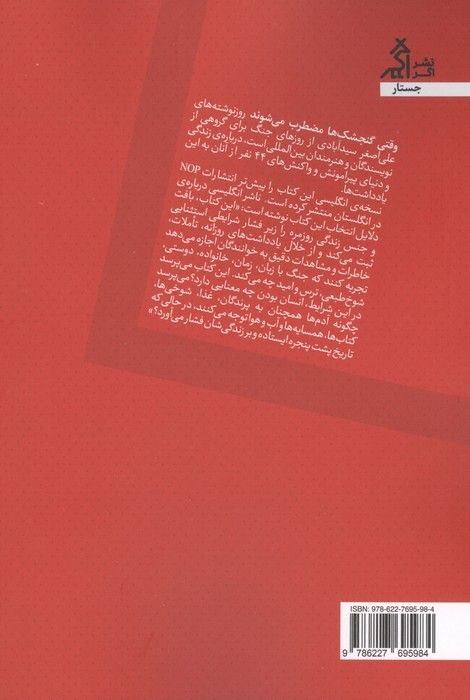 نشر
اگر
جستار
وقتی گنجشک‌ها مضطرب می‌شوند روزنوشته‌های
علی‌اصغر سیدآبادی از روزهای جنگ برای گروهی از
نویسندگان و هنرمندان بین‌المللی است، درباره‌ی زندگی
و دنیای پیرامونش و واکنش‌های ۴۴ نفر از آنان به این
یادداشت‌ها.
نسخه‌ی انگلیسی این کتاب را پیش‌تر انتشارات NOP
در انگلستان منتشر کرده است. ناشر انگلیسی درباره‌ی
دلایل انتخاب این کتاب نوشته است: «این کتاب، بافت
و جنس زندگی روزمره را زیر فشار شرایطی استثنایی
ثبت می‌کند و از خلال یادداشت‌های روزانه، تأملات،
خاطرات و مشاهدات دقیق به خوانندگان اجازه می‌دهد
تجربه کنند که جنگ با زبان، زمان، خانواده، دوستی،
شوخ‌طبعی، ترس و امید چه می‌کند. این کتاب می‌پرسد
در این شرایط، انسان بودن چه معنایی دارد؟ می‌پرسد
چگونه آدم‌ها همچنان به پرندگان، غذا، شوخی‌ها،
کتاب‌ها، همسایه‌ها و آب و هوا توجه می‌کنند، در حالی که
تاریخ پشت پنجره ایستاده و بر زندگی‌شان فشار می‌آورد؟»
ISBN: 978-622-7695-98-4
9 786227 695984